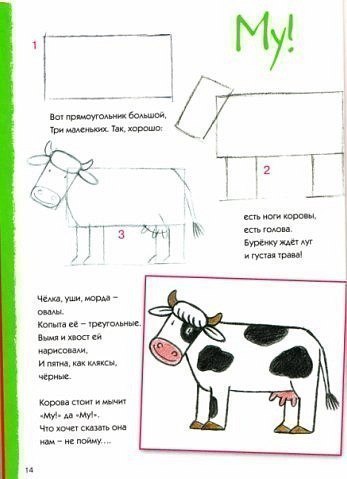 Му!
1
Вот прямоугольник большой,
Три маленьких. Так, хорошо:
2
3
есть ноги коровы,
есть голова.
Бурёнку ждёт луг
и густая трава!
Чёлка, уши, морда –
овалы.
Копыта её – треугольные.
Вымя и хвост ей
нарисовали,
И пятна, как кляксы,
чёрные.
Корова стоит и мычит
«Му!» да «Му!».
Что хочет сказать она
нам – не пойму....
14